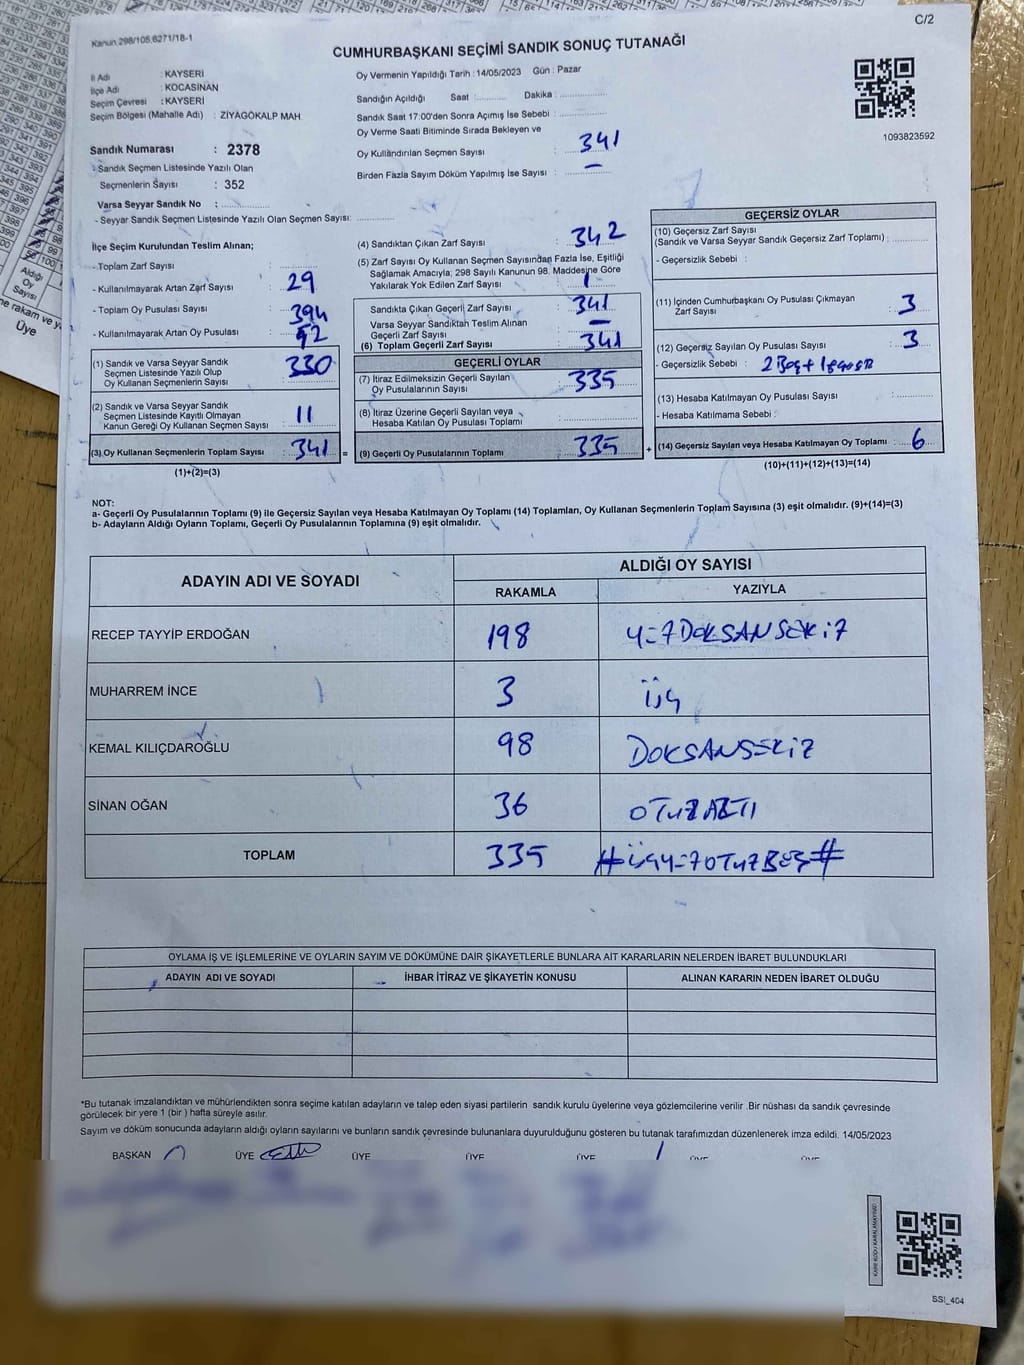 C/2
Kanun 298/105,6271/18-1
CUMHURBAŞKANI SEÇİMİ SANDIK SONUÇ TUTANAĞI
İl Adı : KAYSERİ
İlçe Adı : KOCASİNAN
Seçim Çevresi : KAYSERİ
Seçim Bölgesi (Mahalle Adı) : ZİYAGÖKALP MAH
Sandık Numarası : 2378
- Sandık Seçmen Listesinde Yazılı Olan
Seçmenlerin Sayısı : 352
Varsa Seyyar Sandık No :
- Seyyar Sandık Seçmen Listesinde Yazılı Olan Seçmen Sayısı:
Oy Vermenin Yapıldığı Tarih : 14/05/2023 Gün : Pazar
Sandığın Açıldığı Saat : Dakika :
Sandık Saat 17:00'den Sonra Açımış İse Sebebi :
Oy Verme Saati Bitiminde Sırada Bekleyen ve
Oy Kullandırılan Seçmen Sayısı : 341
Birden Fazla Sayım Döküm Yapılmış İse Sayısı : –
1093823592
İlçe Seçim Kurulundan Teslim Alınan;
- Toplam Zarf Sayısı :
- Kullanılmayarak Artan Zarf Sayısı : 29
- Toplam Oy Pusulası Sayısı : 394
- Kullanılmayarak Artan Oy Pusulası : 52
(1) Sandık ve Varsa Seyyar Sandık
Seçmen Listesinde Yazılı Olup
Oy Kullanan Seçmenlerin Sayısı : 330
(2) Sandık ve Varsa Seyyar Sandık
Seçmen Listesinde Kayıtlı Olmayan
Kanun Gereği Oy Kullanan Seçmen Sayısı : 11
(3) Oy Kullanan Seçmenlerin Toplam Sayısı : 341
(1)+(2)=(3)
(4) Sandıktan Çıkan Zarf Sayısı : 342
(5) Zarf Sayısı Oy Kullanan Seçmen Sayısından Fazla İse, Eşitliği
Sağlamak Amacıyla; 298 Sayılı Kanunun 98. Maddesine Göre
Yakılarak Yok Edilen Zarf Sayısı : 1
Sandıkta Çıkan Geçerli Zarf Sayısı : 341
Varsa Seyyar Sandıktan Teslim Alınan
Geçerli Zarf Sayısı : –
(6) Toplam Geçerli Zarf Sayısı : 341
GEÇERLİ OYLAR
(7) İtiraz Edilmeksizin Geçerli Sayılan
Oy Pusulalarının Sayısı : 335
(8) İtiraz Üzerine Geçerli Sayılan veya
Hesaba Katılan Oy Pusulası Toplamı :
= (9) Geçerli Oy Pusulalarının Toplamı : 335 +
GEÇERSİZ OYLAR
(10) Geçersiz Zarf Sayısı
(Sandık ve Varsa Seyyar Sandık Geçersiz Zarf Toplamı) :
- Geçersizlik Sebebi :
(11) İçinden Cumhurbaşkanı Oy Pusulası Çıkmayan
Zarf Sayısı : 3
(12) Geçersiz Sayılan Oy Pusulası Sayısı : 3
- Geçersizlik Sebebi : 2 Boş +
(13) Hesaba Katılmayan Oy Pusulası Sayısı :
- Hesaba Katılmama Sebebi :
(14) Geçersiz Sayılan veya Hesaba Katılmayan Oy Toplamı : 6
(10)+(11)+(12)+(13)=(14)
NOT:
a- Geçerli Oy Pusulalarının Toplamı (9) ile Geçersiz Sayılan veya Hesaba Katılmayan Oy Toplamı (14) Toplamları, Oy Kullanan Seçmenlerin Toplam Sayısına (3) eşit olmalıdır. (9)+(14)=(3)
b- Adayların Aldığı Oyların Toplamı, Geçerli Oy Pusulalarının Toplamına (9) eşit olmalıdır.
ADAYIN ADI VE SOYADI
ALDIĞI OY SAYISI
RAKAMLA YAZIYLA
RECEP TAYYİP ERDOĞAN 198 YÜZDOKSANSEKİZ
MUHARREM İNCE 3 ÜÇ
KEMAL KILIÇDAROĞLU 98 DOKSANSEKİZ
SİNAN OĞAN 36 OTUZALTI
TOPLAM 335 #ÜÇYÜZOTUZBEŞ#
OYLAMA İŞ VE İŞLEMLERİNE VE OYLARIN SAYIM VE DÖKÜMÜNE DAİR ŞİKAYETLERLE BUNLARA AİT KARARLARIN NELERDEN İBARET BULUNDUKLARI
ADAYIN ADI VE SOYADI İHBAR İTİRAZ VE ŞİKAYETİN KONUSU ALINAN KARARIN NEDEN İBARET OLDUĞU
*Bu tutanak imzalandıktan ve mühürlendikten sonra seçime katılan adayların ve talep eden siyasi partilerin sandık kurulu üyelerine veya gözlemcilerine verilir .Bir nüshası da sandık çevresinde
görülecek bir yere 1 (bir ) hafta süreyle asılır.
Sayım ve döküm sonucunda adayların aldığı oyların sayılarını ve bunların sandık çevresinde bulunanlara duyurulduğunu gösteren bu tutanak tarafımızdan düzenlenerek imza edildi. 14/05/2023
BAŞKAN ÜYE ÜYE ÜYE ÜYE ÜYE ÜYE
SSI_404
Aldığı
Oy
Sayısı
Üye